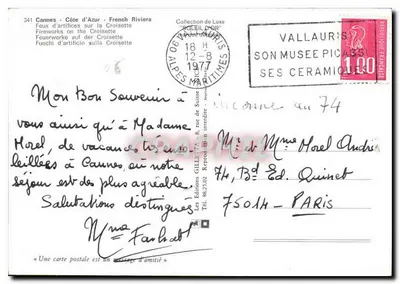 341 Cannes - Côte d'Azur - French Riviera
Feux d'artifices sur la Croisette
Fireworks on the Croisette
Feuerwerke auf der Croisette
Fuochi d'artificio sulla Croisette
Collection de Luxe
"SOLEIL D'OR"
06 VALLAURIS
18 H
12-8
1977
ALPES MARITIMES
VALLAURIS
SON MUSEE PICASSO
SES CERAMIQUES
1.00
REPUBLIQUE FRANÇAISE
inconnu au 74
Mon Bon Souvenir à
vous ainsi qu'à Madame
Morel, de vacances très en-
leillées à Cannes, où notre
séjour est des plus agréable.
Salutations distinguées
Mme
Mr et Mme Morel André
74, Bd Ed. Quinet
75014 - PARIS
Les Editions GILLETTA
"Une carte postale est un message d'amitié"